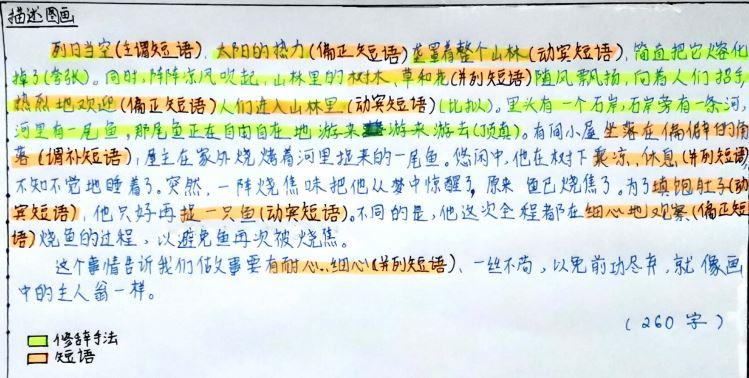 描述图画
列日当空(主谓短语)，太阳的热力(偏正短语)笼罩着整个山林(动宾短语)，简直把它熔化
掉了(夸张)。同时，阵阵凉风吹起，山林里的树木、草和花(并列短语)随风飘扬，向着人们招手，
热烈地欢迎(偏正短语)人们进入山林里(动宾短语)(比拟)。里头有一个石岸，石岸旁有一条河，
河里有一尾鱼，那尾鱼正在自由自在地游来游来游去(顶真)。有间小屋坐落在偏僻的角
落(谓补短语)，屋主在家外烧烤着河里捉来的一尾鱼。悠闲中，他在树下乘凉、休息(并列短语)
不知不觉地睡着了。突然，一阵烧焦味把他从梦中惊醒了，原来鱼已烧焦了。为了填饱肚子(动
宾短语)，他只好再捉一只鱼(动宾短语)。不同的是，他这次全程都在细心地观察(偏正短
语)烧鱼的过程，以避免鱼再次被烧焦。
这个事情告诉我们做事要有耐心、细心(并列短语)、一丝不苟，以免前功尽弃，就像画
中的主人翁一样。
(260字)
修辞手法
短语